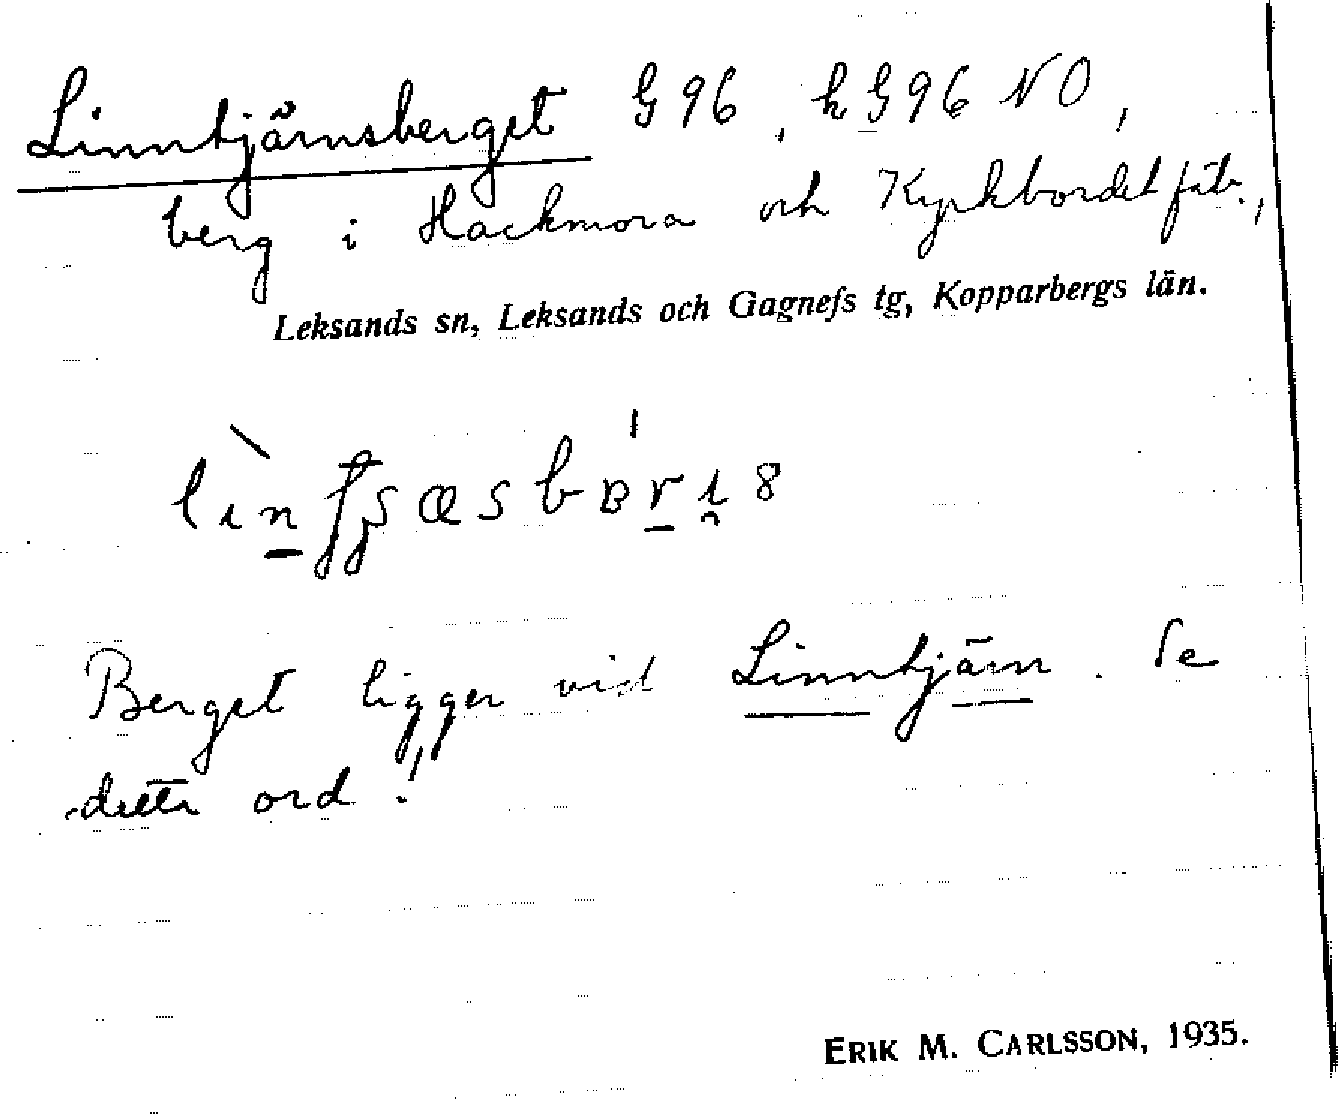 Linntjärnsberget G 96, h G 96 NO,
berg i Hackmora och Kyrkbordet fäb.,
Leksands sn, Leksands och Gagnefs tg, Kopparbergs län.
Berget ligger vid Linntjärn. Se
detta ord!
ERIK M. CARLSSON, 1935.